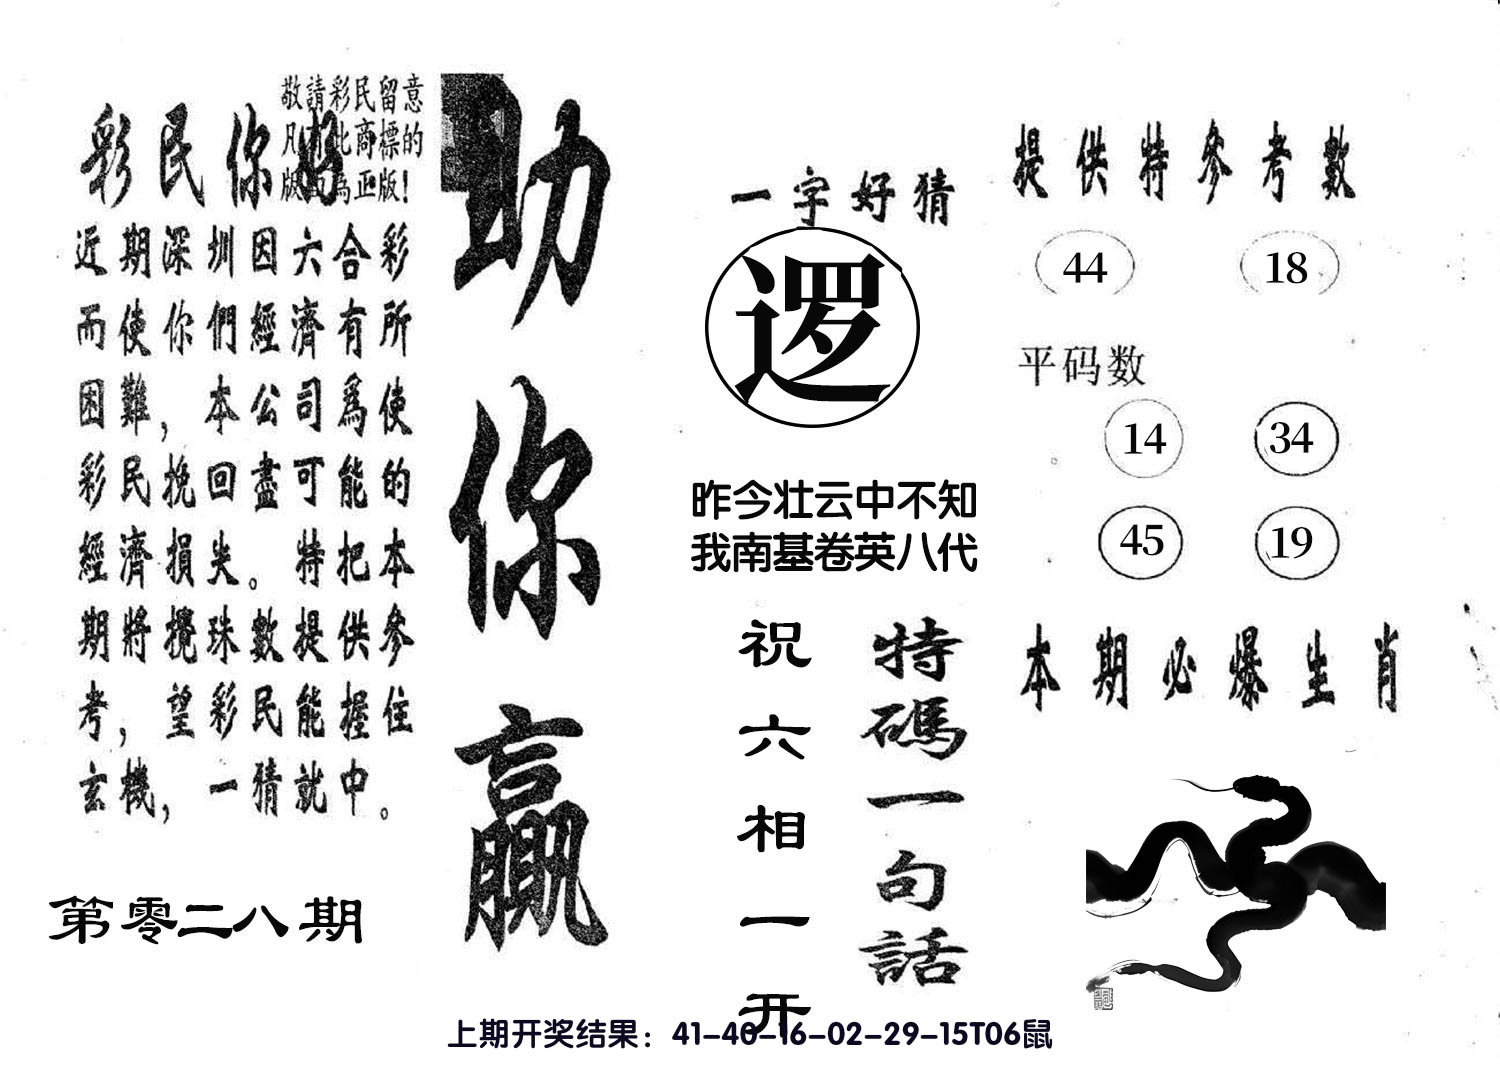 敬請彩民留意
凡有此商標的
版面為正版！
彩民你好
近期深圳因六合彩
而使你們經濟有所
困難，本公司爲使
彩民挽回盡可能的
經濟損失。特把本
期將攪珠數提供參
考，望彩民能握住
玄機，一猜就中。
第零二八期
助你贏
一字好猜
逻
昨今壮云中不知
我南基卷英八代
祝六相一开
特碼一句話
提供特參考數
44 18
平码数
14 34
45 19
本期必爆生肖
上期开奖结果：41-40-16-02-29-15T06鼠